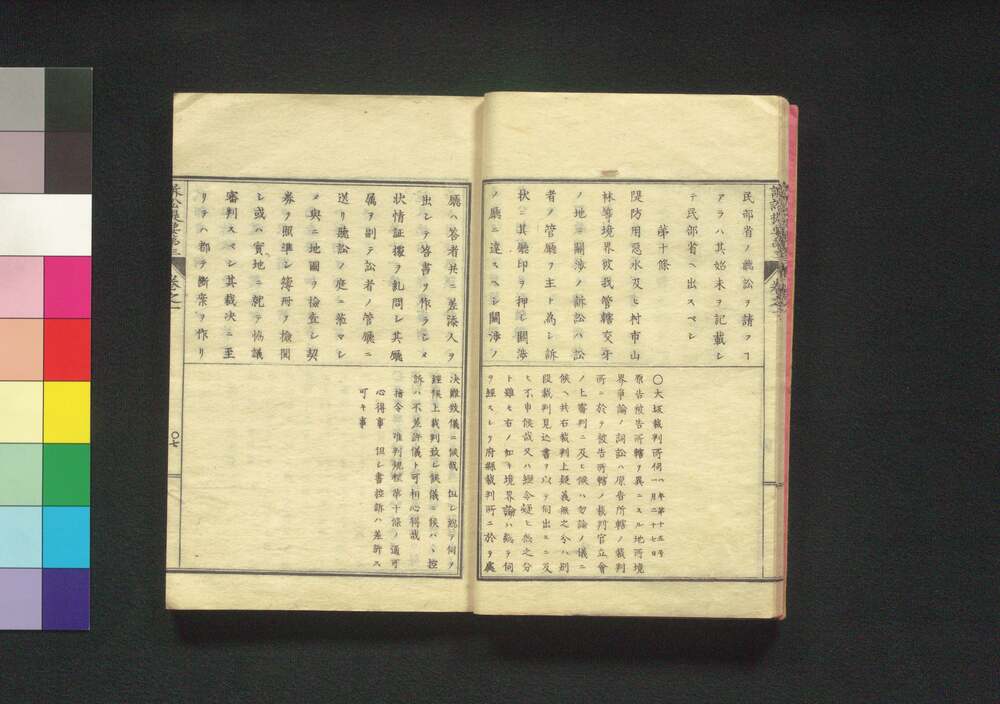 民部省ノ聽訟ヲ請フヿ
アラハ其始末ヲ記載シ
テ民部省ヘ出スベシ
第十條
隄防用惡水及ヒ村市山
林等境界彼我管轄交牙
ノ地ニ關渉ノ訴訟ハ訟
者ノ管廳ヲ主ト爲シ訴
狀ニ其廳印ヲ押シ關渉
ノ廳ニ達スヘシ關渉ノ
〇大坂裁判所伺 八年第十五号 一月二十七日
原告被告所轄ヲ異ニスル地所境
界爭論ノ詞訟ハ原告所轄ノ裁判
所ニ於テ被告所轄ノ裁判官立會
ノ上審判ニ及ヒ候ハ勿論ノ儀ニ
候ヘ共右裁判上疑義無之分ハ別
段裁判見込書ヲ以テ伺出スニ及
ヒ不申候哉又ハ縱令疑ヒ無之分
ト雖モ右ノ如キ境界論ハ總テ伺
ヲ經スシテ府縣裁判所ニ於テ處
廳ハ答者共ニ差添人ヲ
出シテ答書ヲ作ラシメ
狀情証攄ヲ糺問シ其廳
属ヲ副テ訟者ノ管廳ニ
送リ聽訟ノ庭ニ蒞マシ
メ與ニ地圖ヲ檢査シ契
券ヲ照準シ簿冊ヲ撿閲
シ或ハ實地ニ就テ協議
審判スベシ其裁决ニ至
リテハ都テ斷案ヲ作リ
决難致儀ニ候哉 但シ總テ伺ヲ
經候上裁判致シ候儀ニ候ハヽ控
訴ハ不差許儀ト可相心得哉
指令 准判規程第十條ノ通可
心得事 但シ書控訴ハ差許ス
可キ事
卷之一
〇七